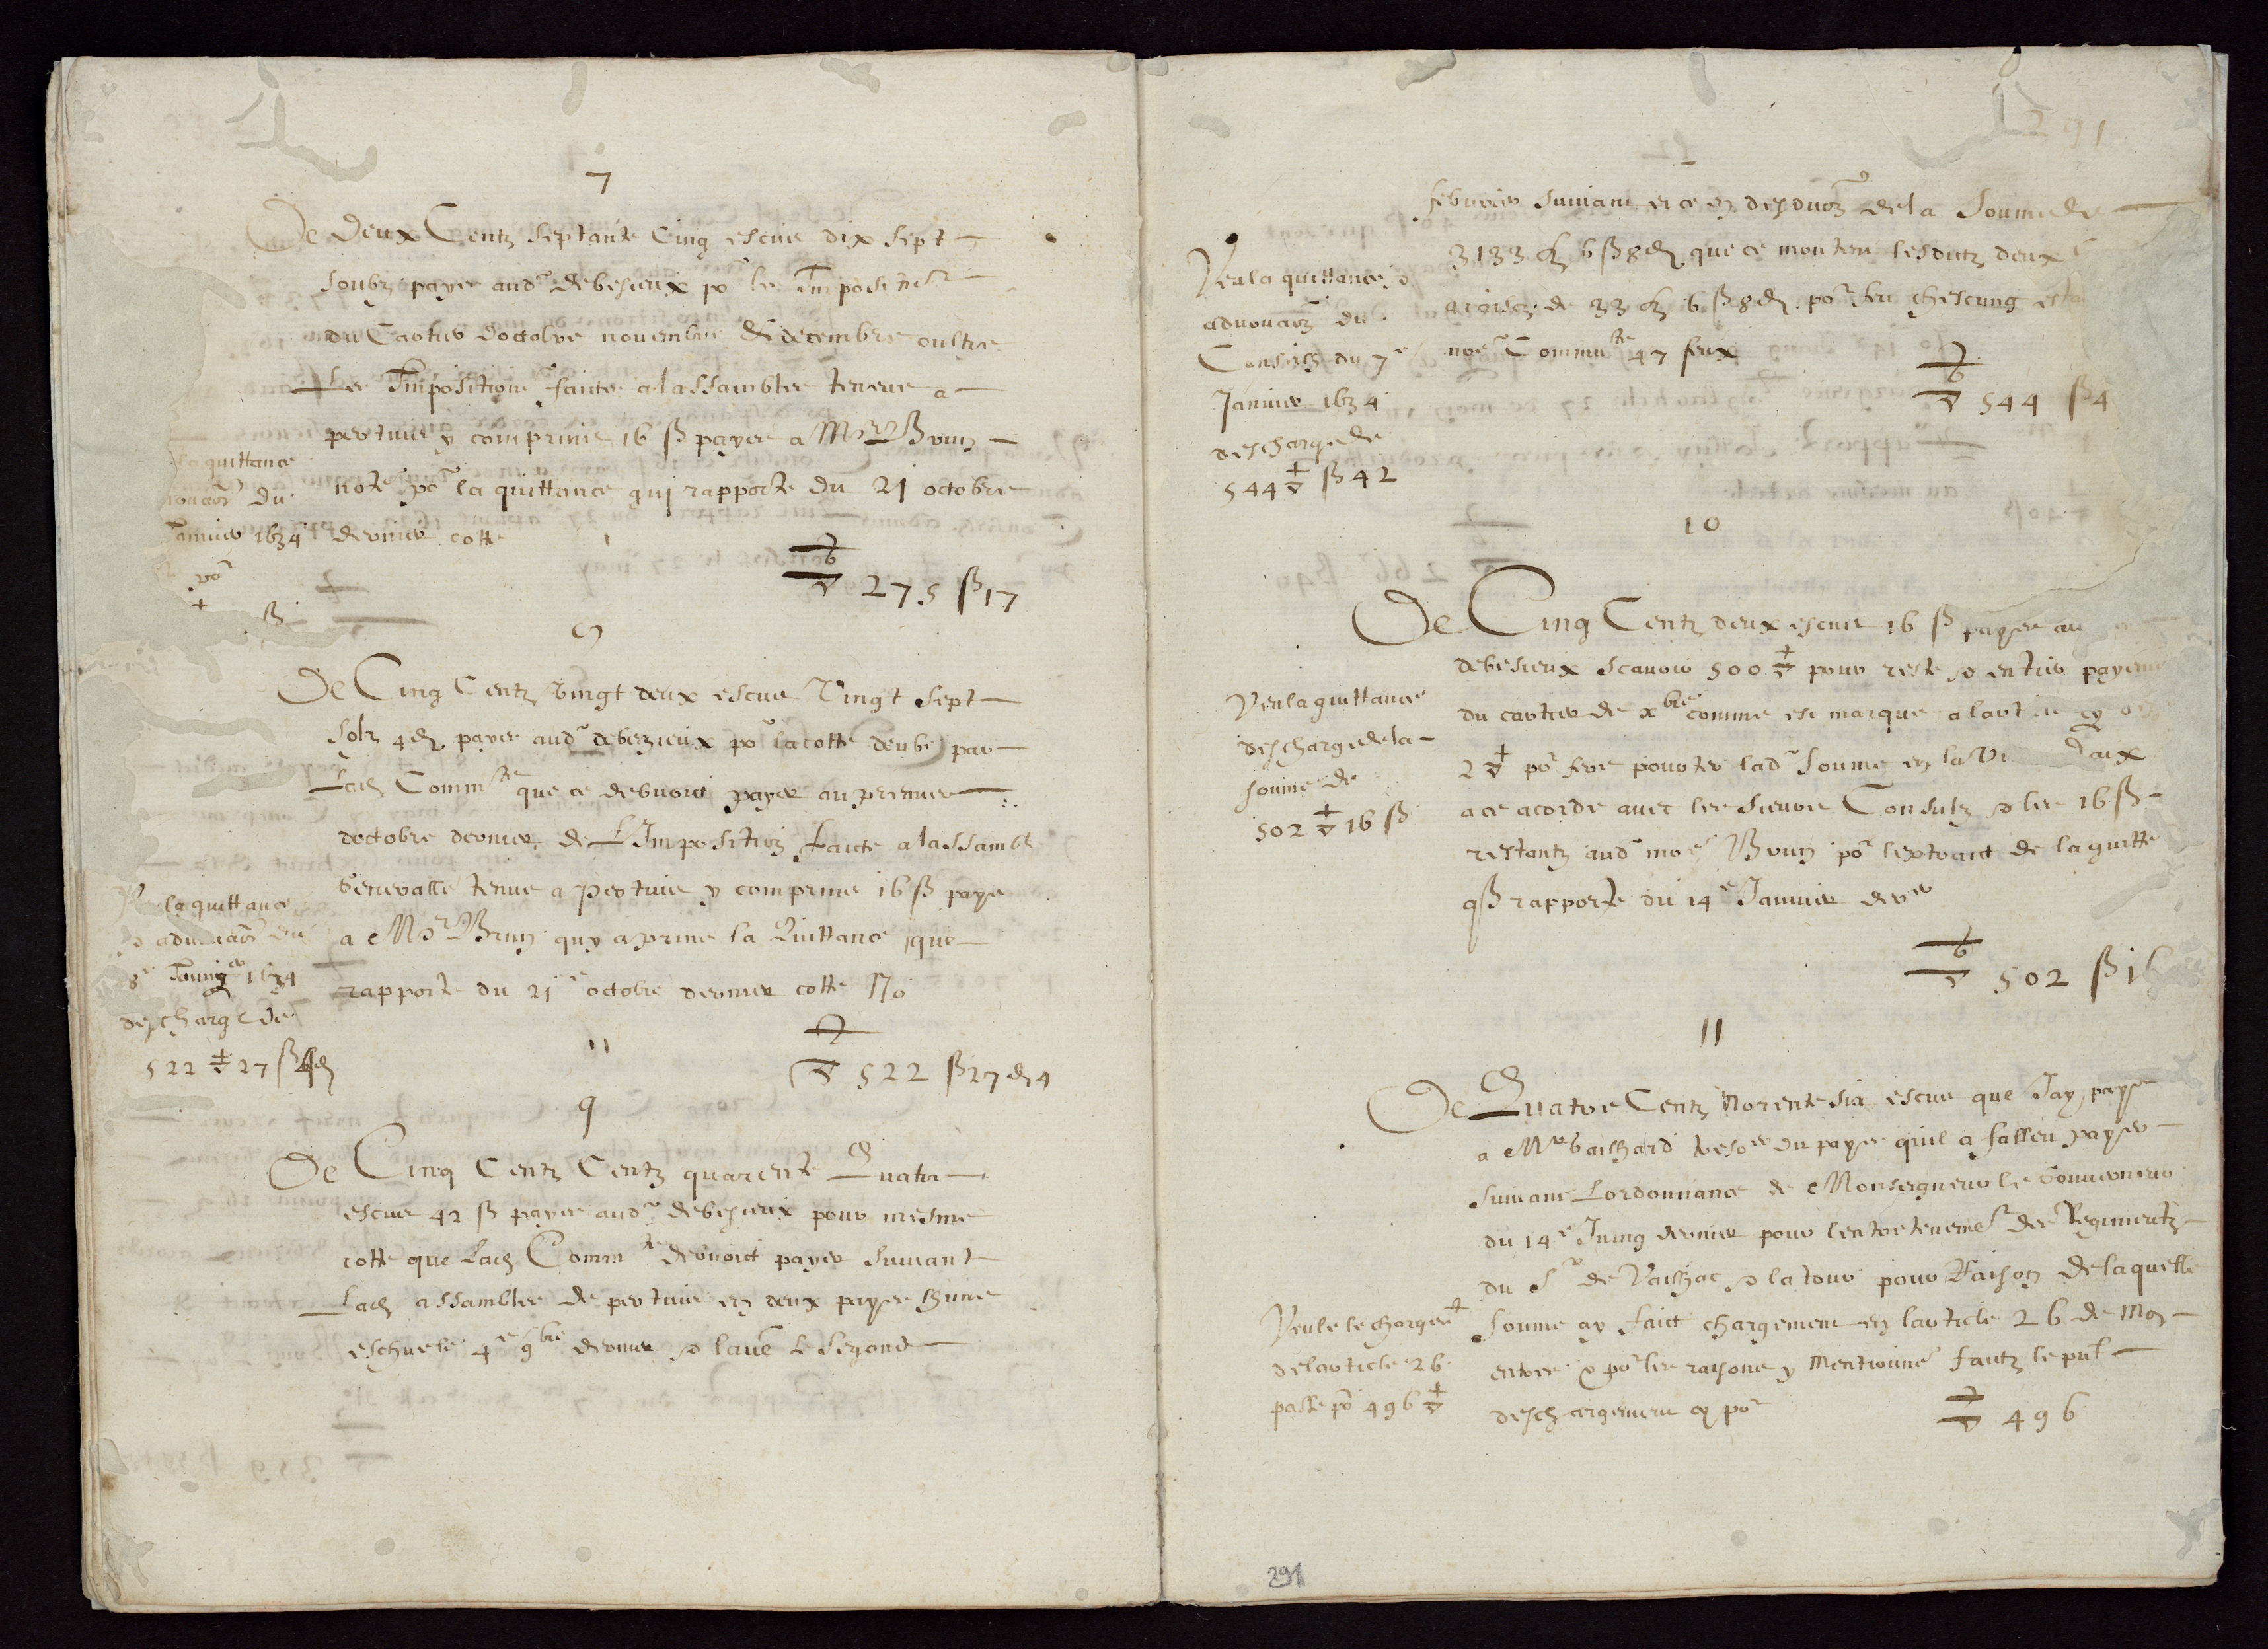 7
De Deux Centz septante Cinq escus dix sept
soubz payes aud.r debesieux po.r les Imposin.s
du Cartier doctobre novembre & decembre oultre
Les Impositions faictes a lassamblee teneue a
pertuis y comprins 16 ß payes a M.r Brun
note po.r la quittance quj rapporte du 21 octobre
dernier cotte
la quittance
du
Janvier 1634
po.r
ß
275 ß 17
De Cinq Centz vingt deux escus Vingt sept
solz 4 d payes aud.r debezieux po.r la cotte deube par
Lad Comm.te que ce debvoict payer au premier
doctobre dernier de L'Imposition faicte a lassambl
generalle tenue a Pertuis y comprins 16 ß paye
a M.r Brun quy a prins la Quittance que
rapporte du 21 e octobre dernier cotte No
la quittance
8 e Janvi er 1634
descharge de
522 27 ß 4 d
11
522 ß 27 d 4
9
De Cinq Centz Centz quarente Quatre
escus 42 ß payes aud.r debesieux pour mesme
cotte que Lad Comm te debvoict payer suivant
Lad assamblee de pertuis en deux payes L'une
escheue le 4 e 9 bre dernier & lau.e le segond
291
febvrier suivant et ce en desduo.n de la Soume de
3133 6 ß 8 d que ce montent lesdictz deux
de 33 6 ß 8 d po.r feu chescung
no.e Commu te 47 feux
Veu la quittance
du
Consulz du 7 e
Janvier 1634
descharge de
544 ß 42
544 ß 4
10
De Cinq Centz deux escus 16 ß payes au
debesieux scavoir 500 pour reste & entier payem
du cartier de x bre comme est marque a lart cy
2 po.r fere pourter lad.e Soume en la vi daix
a ce acorde avec les Sieurs Consulz & les 16 ß
restantz aud.r mo.e Brun po.r lextraict de la quitte
rapporte du 14 e Janvier der er
Veu la quittance
descharge de la
soume de
502 16 ß
502 ß 16
11
De Quatre Centz Norente six escus que Jay paye
a M.re Gailhard treso.er du pays quil a falleu payer
suivant Lordonnance de Monseigneur le Gouverneur
du 14 e Juing dernier pour lentretenem.t des Regimentz
du S.r de Vailhac & la tour pour Raison de laquelle
soume ay faict chargement en larticle 26 de Mon
entree & po.r les raisons y Mentionne.s fautz le pnt
deschargement cy po.r
Veu le chorgem.t
de larticle 26
passe po.r 496
496
291